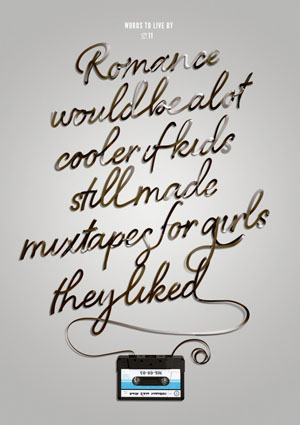 WORDS TO LIVE BY
Romance
would be a lot
cooler if kids
still made
mixtapes for girls
they liked